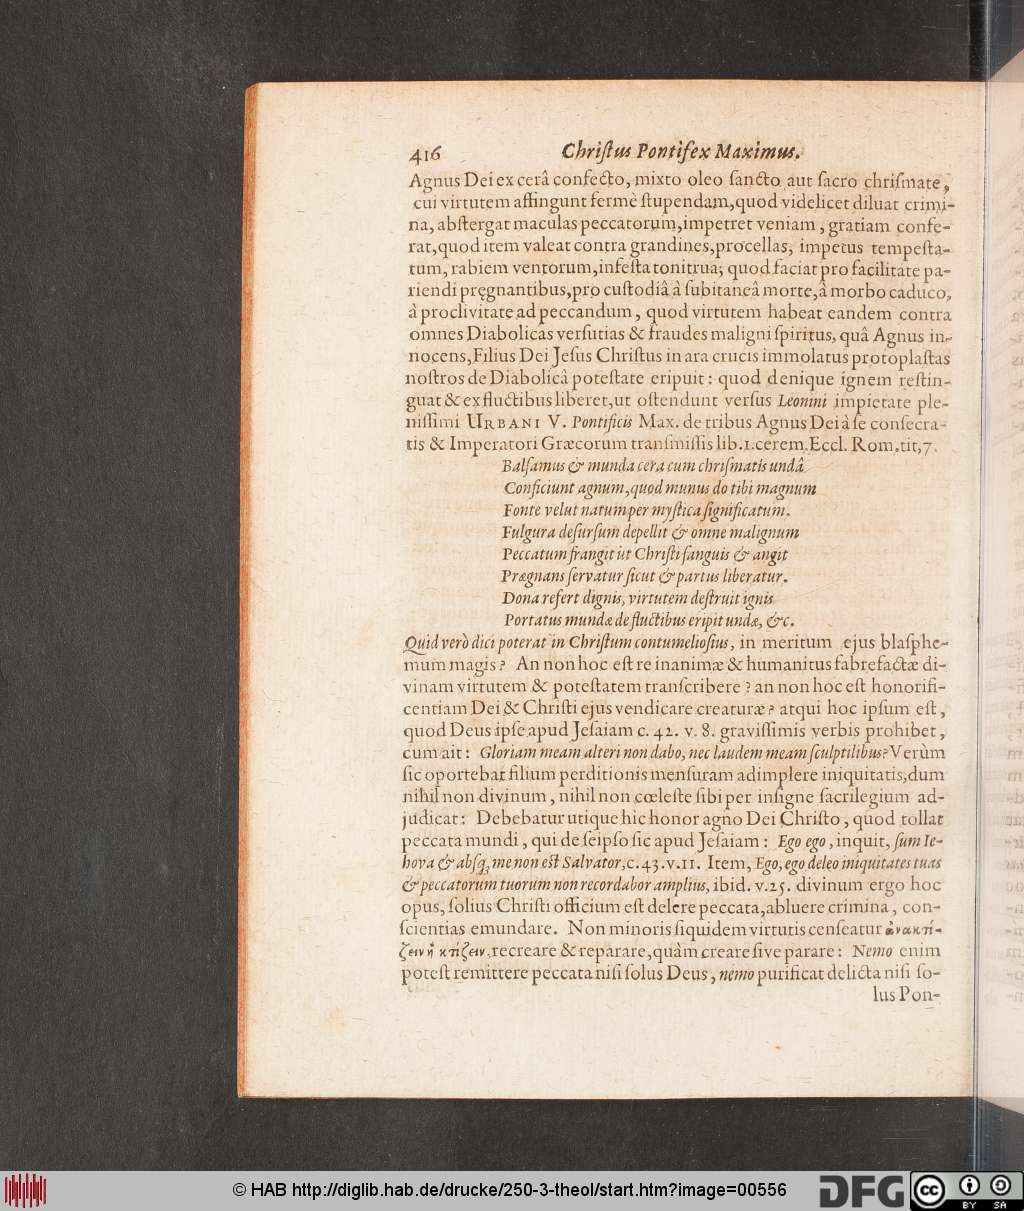 416 Chriſtus Pontifex Maximus.
Agnus Dei ex cerâ confecto, mixto oleo ſancto aut ſacro chriſmate,
cui virtutem affingunt fermè ſtupendam, quod videlicet diluat crimi-
na, abſtergat maculas peccatorum, impetret veniam, gratiam confe-
rat, quod item valeat contra grandines, procellas, impetus tempeſta-
tum, rabiem ventorum, infeſta tonitrua; quod faciat pro facilitate pa-
riendi pręgnantibus, pro cuſtodiâ à ſubitaneâ morte, â morbo caduco,
à proclivitate ad peccandum, quod virtutem habeat eandem contra
omnes Diabolicas verſutias & fraudes maligni ſpiritus, quâ Agnus in-
nocens, Filius Dei Jeſus Chriſtus in ara crucis immolatus protoplaſtas
noſtros de Diabolicâ poteſtate eripuit: quod denique ignem reſtin-
guat & ex fluctibus liberet, ut oſtendunt verſus Leonini impietate ple-
niſſimi URBANI V. Pontificis Max. de tribus Agnus Dei à ſe conſecra-
tis & Imperatori Græcorum tranſmiſſis lib. 1. cerem. Eccl. Rom. tit. 7.
Balſamus & munda cera cum chriſmatis undâ
Conficiunt agnum, quod munus do tibi magnum
Fonte velut natum per myſtica ſignificatum.
Fulgura deſurſum depellit & omne malignum
Peccatum frangit ut Chriſti ſanguis & angit
Prægnans ſervatur ſicut & partus liberatur.
Dona refert dignis, virtutem deſtruit ignis
Portatus mundæ de fluctibus eripit undæ, &c.
Quid verò dici poterat in Chriſtum contumelioſius, in meritum ejus blaſphe-
mum magis? An non hoc eſt re inanimæ & humanitus fabrefactæ di-
vinam virtutem & poteſtatem tranſcribere? an non hoc eſt honorifi-
centiam Dei & Chriſti ejus vendicare creaturæ? atqui hoc ipſum eſt,
quod Deus ipſe apud Jeſaiam c. 42. v. 8. graviſſimis verbis prohibet,
cum ait: Gloriam meam alteri non dabo, nec laudem meam ſculptilibus? Verùm
ſic oportebat filium perditionis menſuram adimplere iniquitatis, dum
nihil non divinum, nihil non cœleſte ſibi per inſigne ſacrilegium ad-
judicat: Debebatur utique hic honor agno Dei Chriſto, quod tollat
peccata mundi, qui de ſeipſo ſic apud Jeſaiam: Ego ego, inquit, ſum Ie-
hova & abſq; me non eſt Salvator, c. 43. v. 11. Item, Ego, ego deleo iniquitates tuas
& peccatorum tuorum non recordabor amplius, ibid. v. 25. divinum ergo hoc
opus, ſolius Chriſti officium eſt delere peccata, abluere crimina, con-
ſcientias emundare. Non minoris ſiquidem virtutis cenſeatur ἀνακτί-
ζειν ἢ κτίζειν, recreare & reparare, quàm creare ſive parare: Nemo enim
poteſt remittere peccata niſi ſolus Deus, nemo purificat delicta niſi ſo-
lus Pon-
© HAB http://diglib.hab.de/drucke/250-3-theol/start.htm?image=00556
DFG
cc BY SA